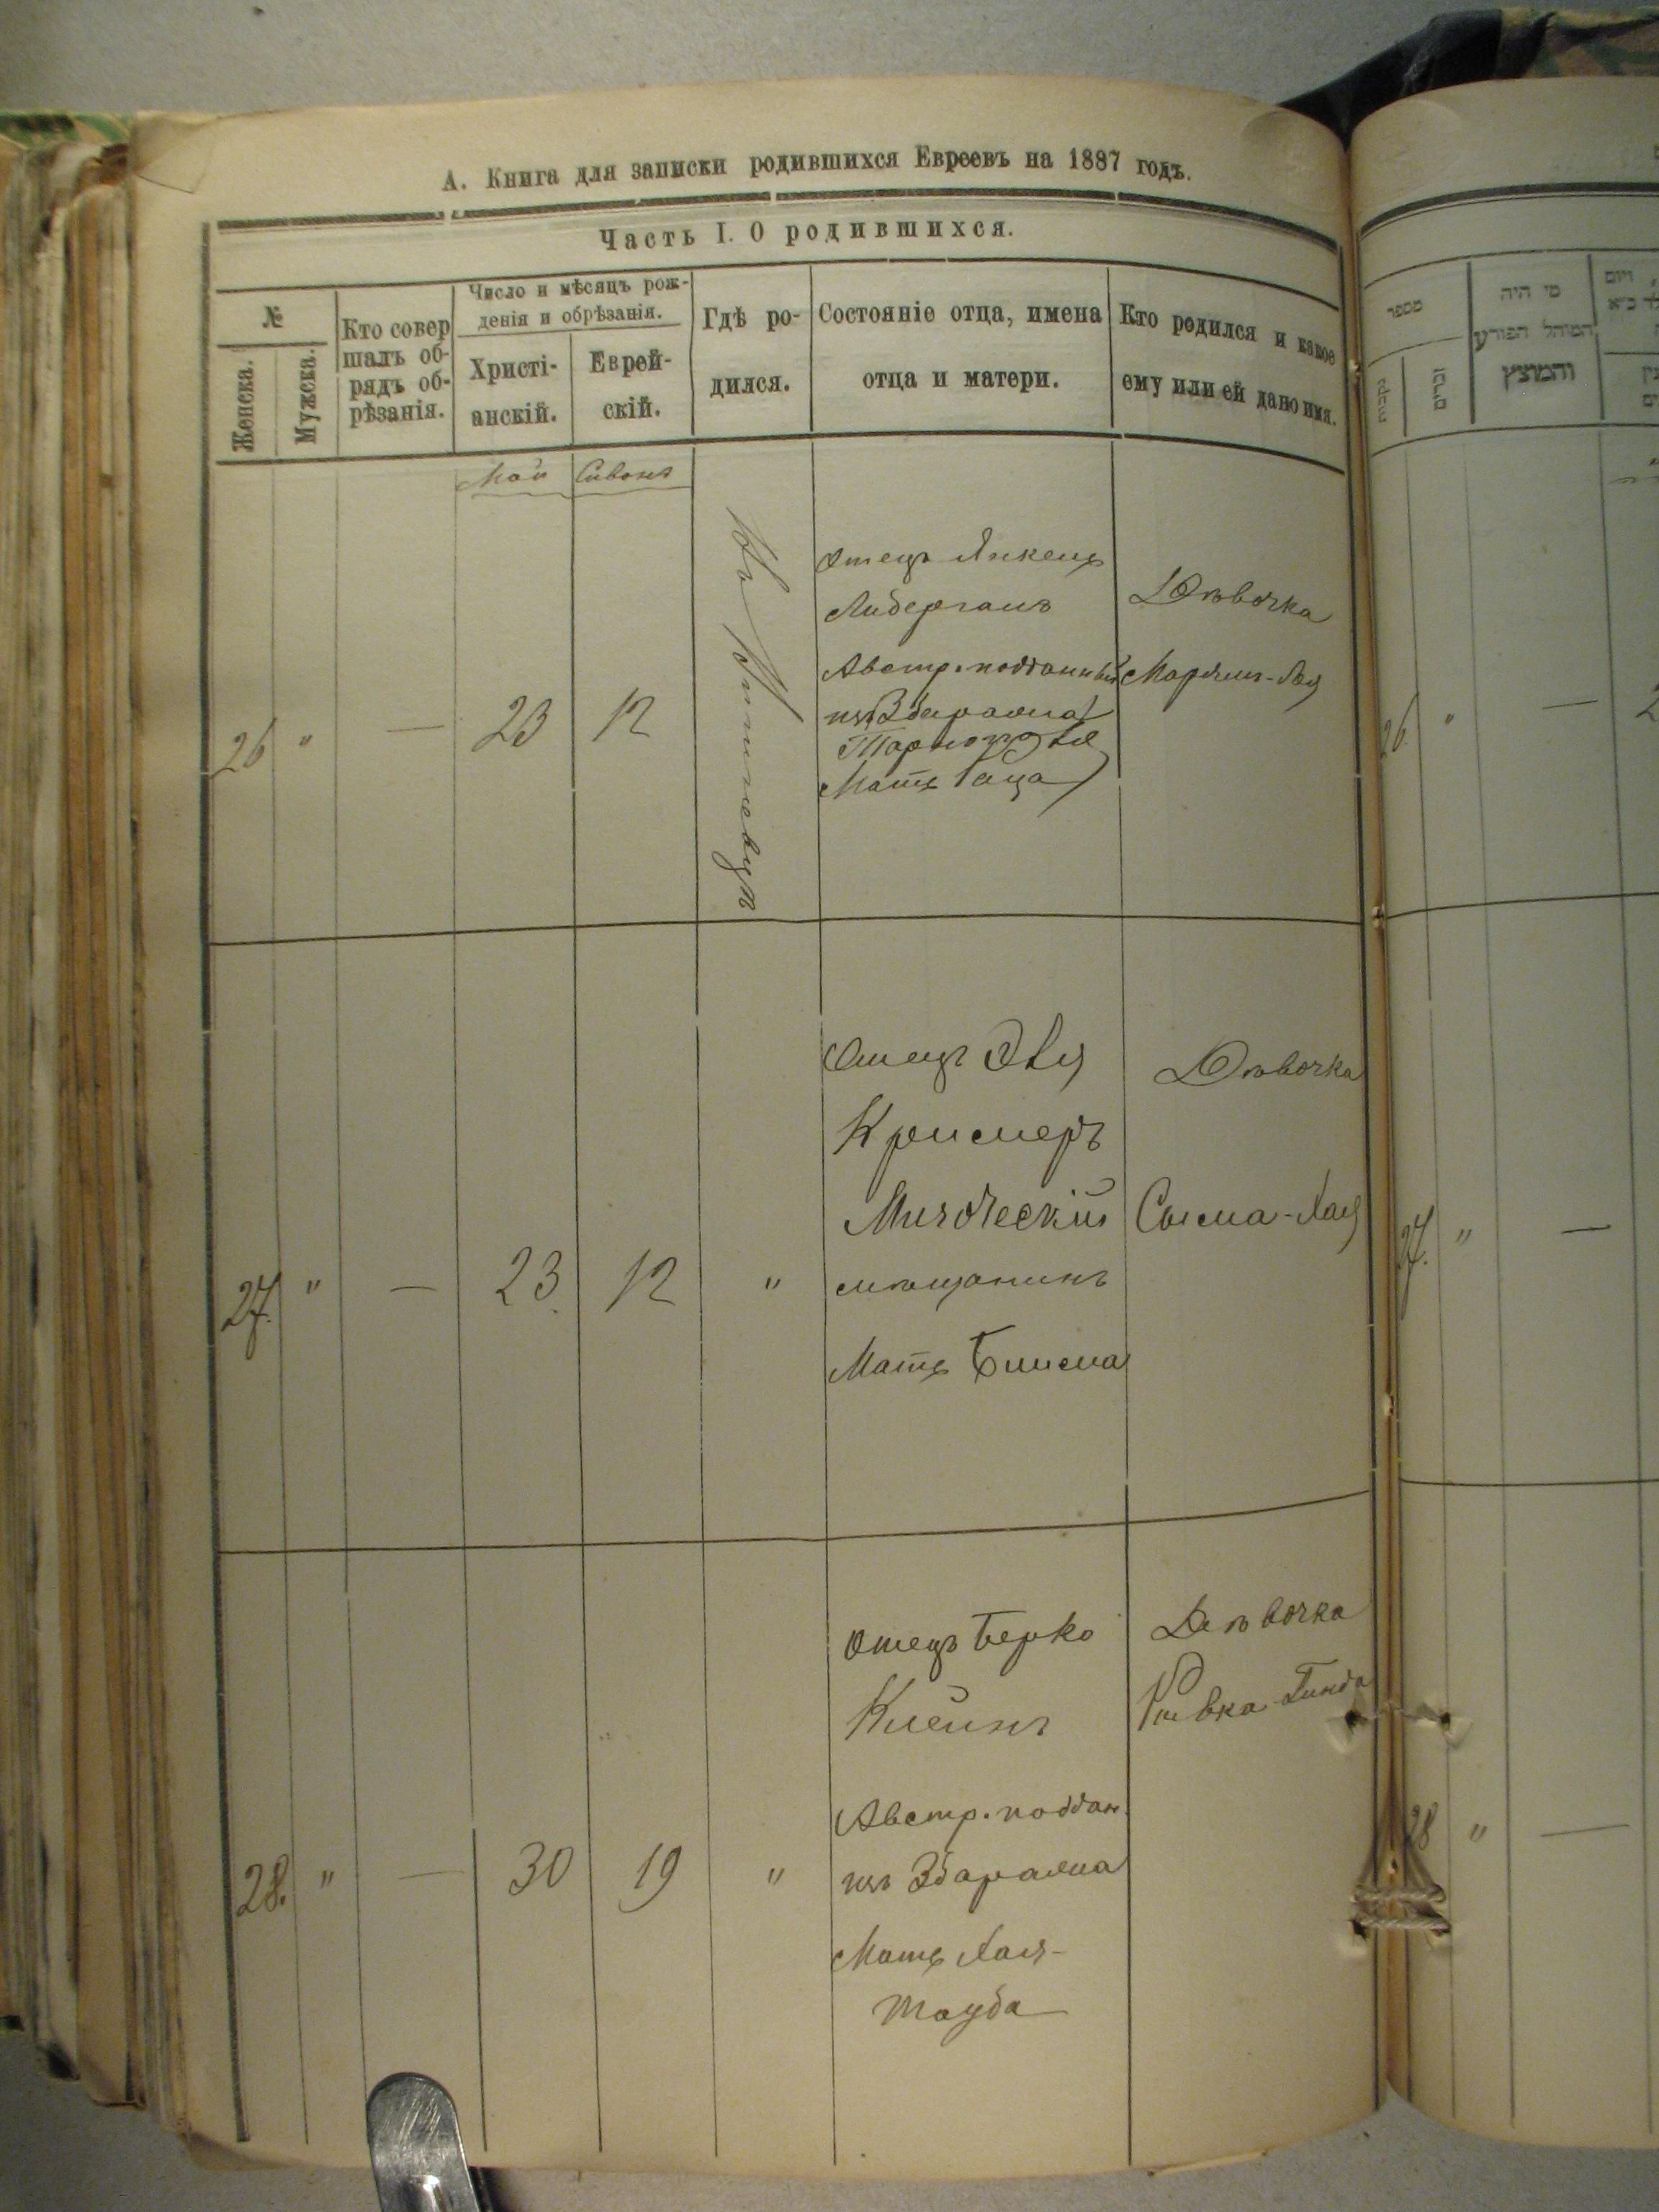 А. Книга для записки родившихся Евреевъ на 1887 годъ.
Часть I. О родившихся.
№
Женска.
Мужска.
Кто совер
шалъ об-
рядъ об-
рѣзанія.
Число и мѣсяцъ рож-
денія и обрѣзанія.
Христі-
анскій.
Еврей-
скій.
Гдѣ ро-
дился.
Состояніе отца, имена
отца и матери.
Кто родился и какое
ему или ей дано имя.
Май
Сивонъ
26 " — 23 12
Отецъ Янкель
Либерганъ
Австр. подданный
изъ Збаража
Тарнополѣ
Мать Баца
Дѣвочка
Марьям-Хая
27. " — 23 12 "
Отецъ Эля
Кремеръ
мѣщанинъ
Мать
Дѣвочка
Сосма-Хая
28. " — 30 19 "
Отецъ Берко
Клейнъ
Австр. поддан.
изъ Збаража
Мать Хая-
Тауба
Девочка
Ривка-Гинда
מספר
נקבות
זכרים
מי היה
המוהל הפורע
והמוצץ
26 " —
27. " —
28 " —